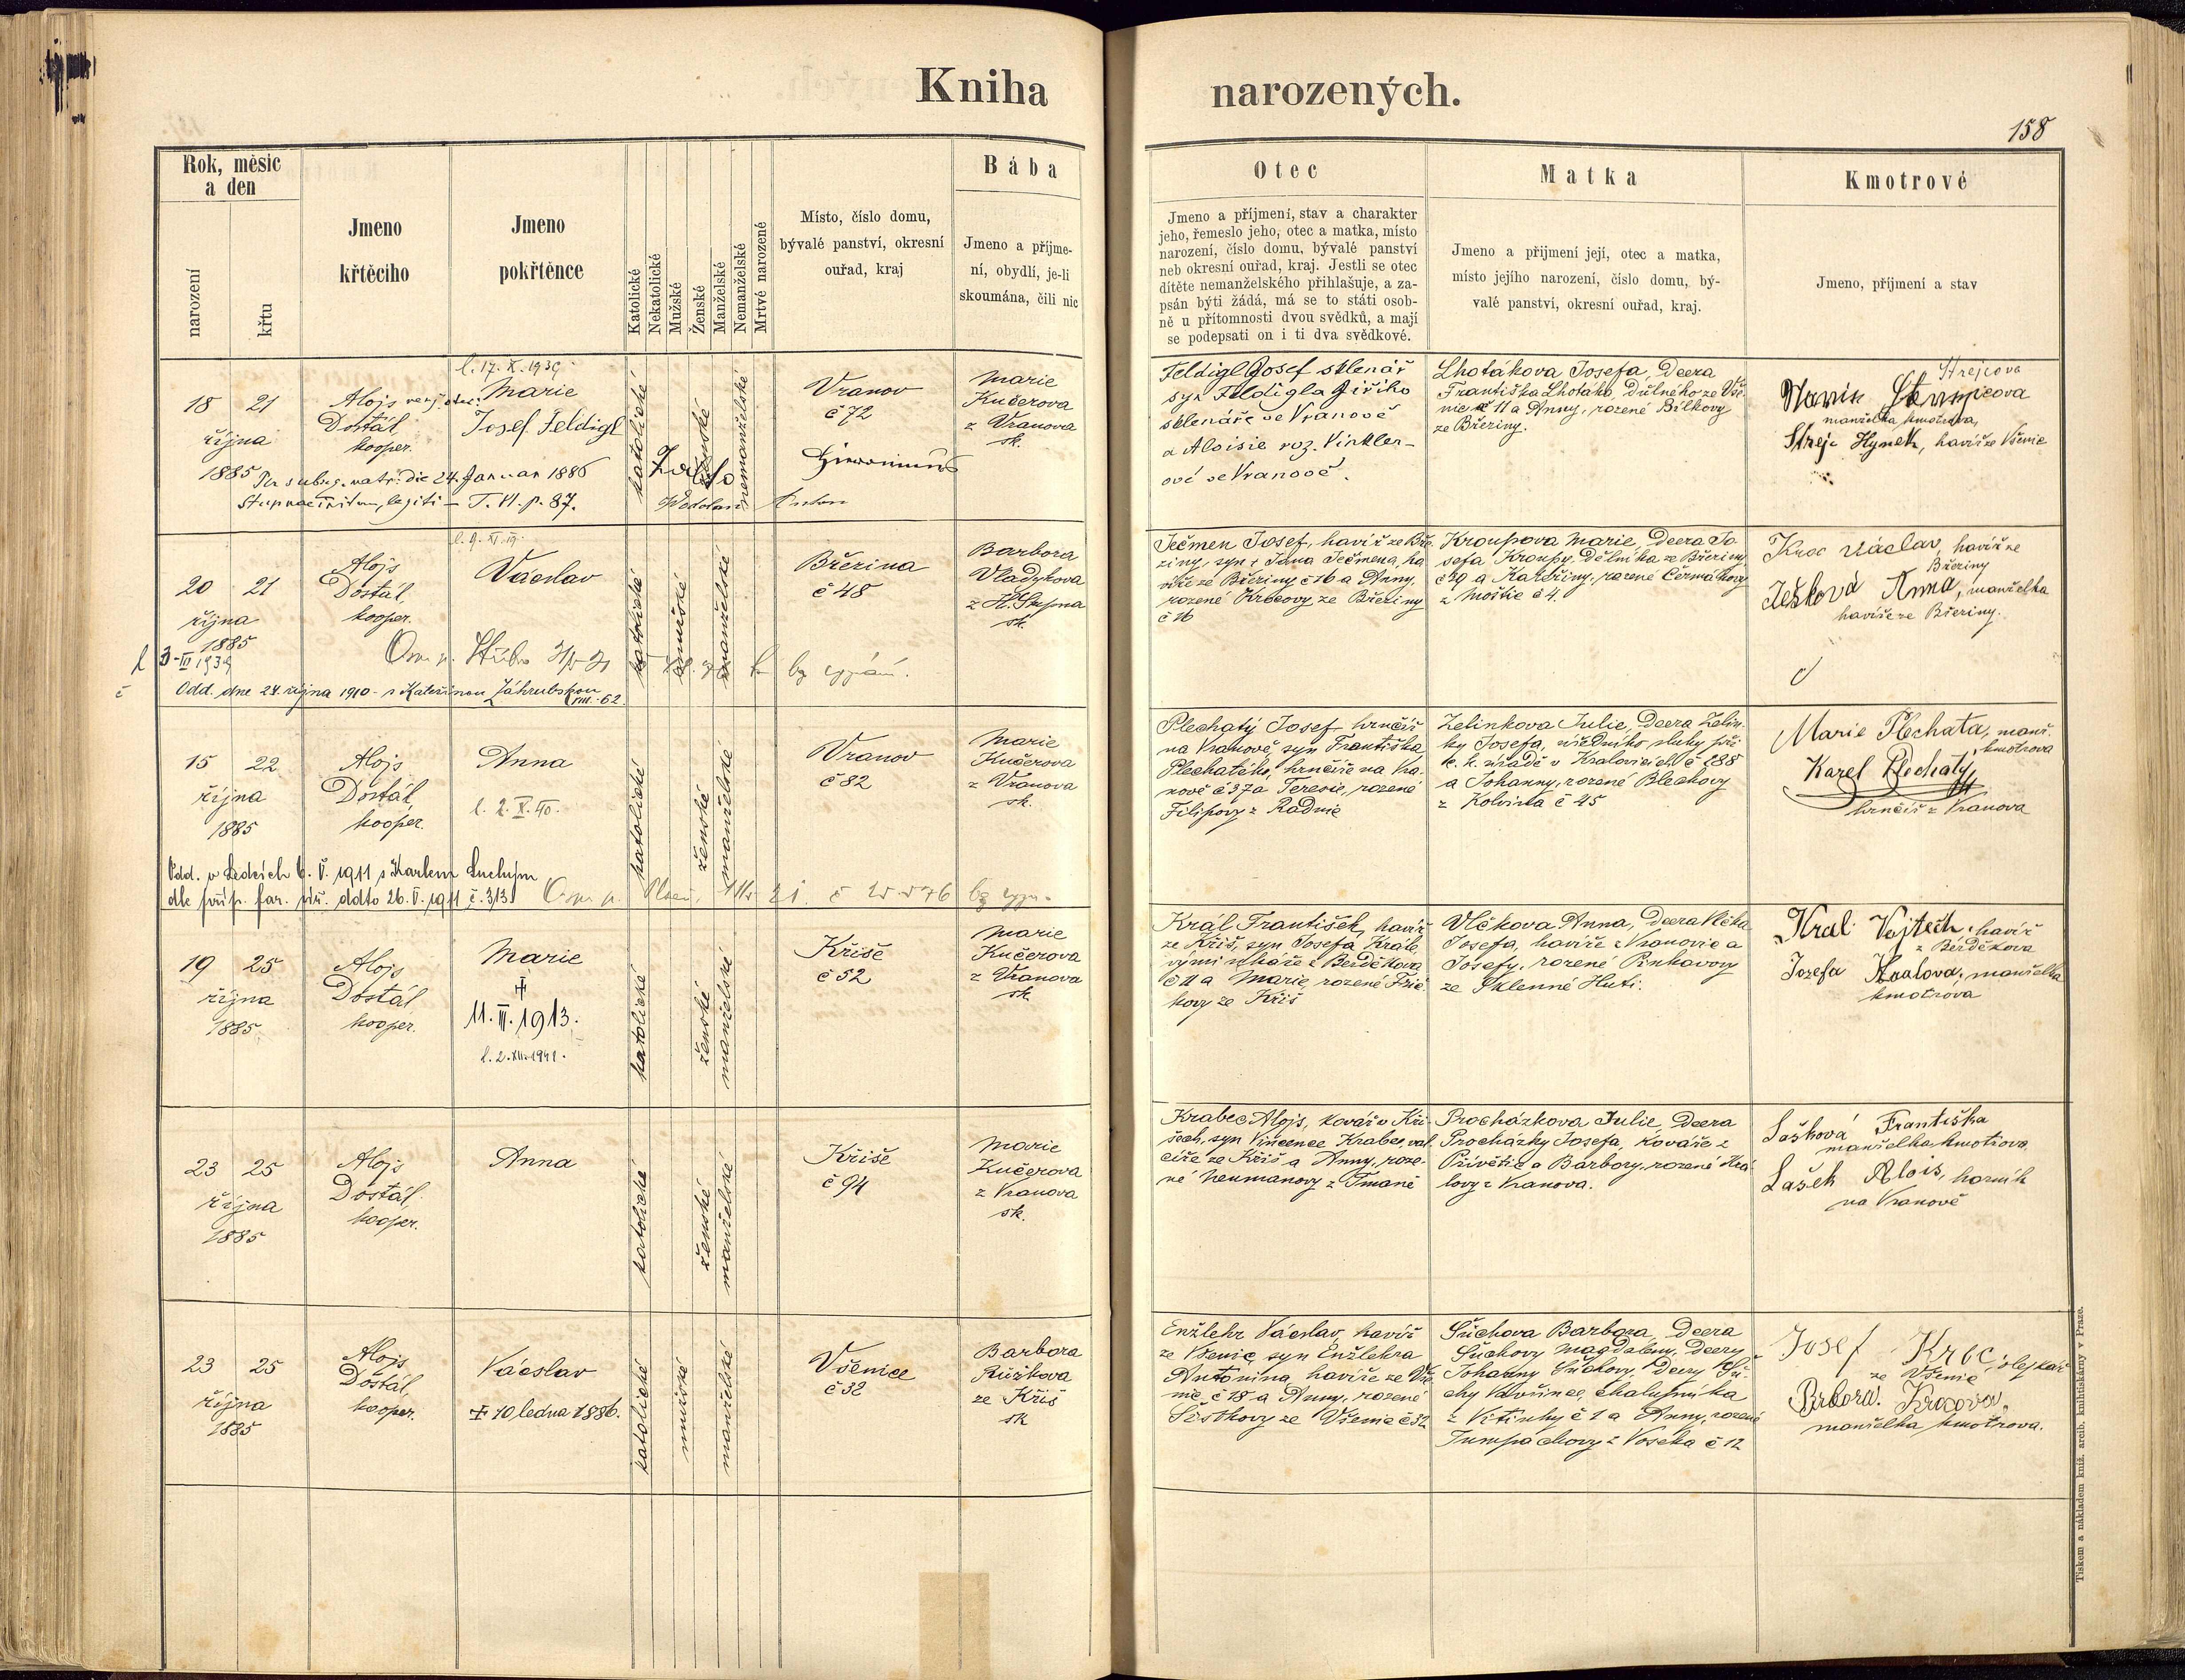 Kniha narozených.
158
Rok, měsíc
a den
narození
křtu
Jmeno
křtěcího
Jmeno
pokřtěnce
Katolické
Nekatolické
Mužské
Ženské
Manželské
Nemanželské
Mrtvé narozené
Místo, číslo domu,
bývalé panství, okresní
ouřad, kraj
Bába
Jmeno a příjme-
ní, obydlí, je-li
skoumána, čili nic
Otec
Jmeno a příjmení, stav a charakter
jeho, řemeslo jeho, otec a matka, místo
narození, číslo domu, bývalé panství
neb okresní ouřad, kraj. Jestli se otec
dítěte nemanželského přihlašuje, a za-
psán býti žádá, má se to státi osob-
ně u přítomnosti dvou svědků, a mají
se podepsati on i ti dva svědkové.
Matka
Jmeno a přijmení její, otec a matka,
místo jejího narození, číslo domu, bý-
valé panství, okresní ouřad, kraj.
Kmotrové
Jmeno, příjmení a stav
18 21
října
1885
Alojs
Dostál,
kooper.
l. 17. X. 1939
Marie
Josef Feldigl
24. Januar 1886
T. VI. p. 87.
katolické
ženské
nemanželské
Vranov
č 72
Marie
Kučerova
z Vranova
sk.
Feldigl Josef sklenář
syn Feldigla Jiřího
sklenáře ve Vranově
a Aloisie roz. Vinkler-
ové ve Vranově.
Lhotákova Josefa, Dcera
Františka Lhotáka, Dělného ze Vše-
nic č 11 a Anny, rozené Bílkovy
ze Březiny.
Strejcova
manželka, kmotrova,
Strejc Hynek, havíř ze Všenic
20 21
října
1885
Alojs
Dostál,
kooper.
Václav
katolické
mužské
manželské
Březina
č 48
Barbora
Vladykova
z H. Stupna
sk.
3-III 1939
Odd. dne 24 října 1910 s Kateřinou Záhrubskou
VIII.-62.
Ječmen Josef, havíř ze Bře-
ziny, syn + Jana Ječmena, ha-
víře ze Březiny č 16 a Anny,
rozené Krocovy ze Březiny
č 16
Kroupova Marie, Dcera Jo-
sefa Kroupy, Dělníka ze Březiny
č 29 a Kateřiny, rozené Čermákovy
z Moštic č 4.
Kroc Václav, havíř ze
Březiny
Ježková Anna, manželka
havíře ze Březiny.
15 22
října
1885
Alojs
Dostál,
kooper.
Anna
l. 2. X. 40.
katolické
ženské
manželské
Vranov
č 82
Marie
Kučerova
z Vranova
sk.
Odd. v Ledcích 6. V. 1911 s Karlem Suchým
dle příp. far. úř. ddto 26. V. 1911 č. 313
Plechatý Josef, hrnčíř
na Vranově, syn Františka
Plechatého, hrnčíře na Vra-
nově č 37 a Terezie, rozené
Filipovy z Radnic
Zelinkova Julie, Dcera Zelin-
ky Josefa, úředního sluhy při
k. k. úřadě v Kralovicích č 188
a Johanny, rozené Blechovy
z Kolvína č 45
Marie Plechata, manž.
kmotrova
Karel Plechatý,
hrnčíř z Vranova
19 25
října
1885
Alojs
Dostál
kooper.
Marie
11. III. 1913.
l. 2. XII. 1941.
katolické
ženské
manželské
Kříše
č 52
Marie
Kučerova
z Vranova
sk.
Král František, havíř
ze Kříš, syn Josefa Krále,
výměnkáře z Bezděkova
č 11 a Marie, rozené Fric-
kovy ze Kříš
Vlčkova Anna, Dcera Vlčka
Josefa, havíře z Vranovic a
Josefy, rozené Pinkavovy
ze Sklenné Huti.
Kral Vojtěch, havíř
z Bezděkova
Jozefa Kralova, manželka
kmotrova
23 25
října
1885
Alojs
Dostál,
kooper.
Anna
katolické
ženské
manželské
Kříše
č 94
Marie
Kučerova
z Vranova
sk.
Krabec Alojs, kovář v Kří-
šech, syn Vincence Krabce, val-
cíře ze Kříš a Anny, roze-
né Neumanovy z Tmaně
Procházkova Julie, Dcera
Procházky Josefa, kováře z
Přívětic a Barbory, rozené Krá-
lovy z Vranova.
Lašková Františka
manželka kmotrova
Lašek Alois, horník
na Vranově
23 25
října
1885
Alojs
Dostál,
kooper.
Václav
+ 10 ledna 1886.
katolické
mužské
manželské
Všenice
č 32
Barbora
Růžkova
ze Kříš
sk
Enžlehr Václav, havíř
ze Všenic, syn Enžlehra
Antonína, havíře ze Vše-
nic, č 18 a Anny, rozené
Šestkovy ze Všenic č 32
Súchova Barbora, Dcera
Súchovy Magdaleny, Dcery
Johanny Súchovy, Dcery Sú-
chy Vavřince, chalupníka
z Vitinky č 1 a Anny, rozené
Tumpachovy z Voseka č 12
Josef Kroc, olejkář
ze Všenic
Brbora Krocova,
manželka kmotrova.
Tiskem a nákladem kníž. arcib. knihtiskárny v Praze.